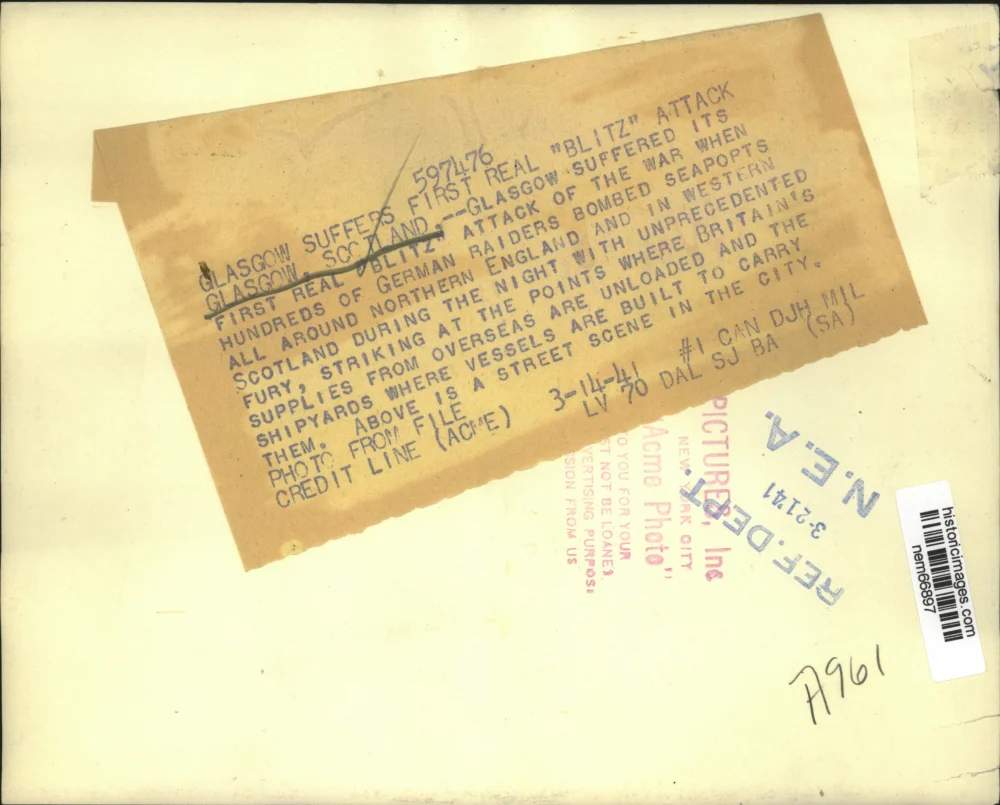 597476
GLASGOW SUFFERS FIRST REAL "BLITZ" ATTACK
GLASGOW, SCOTLAND.--GLASGOW SUFFERED ITS
FIRST REAL "BLITZ" ATTACK OF THE WAR WHEN
HUNDREDS OF GERMAN RAIDERS BOMBED SEAPOPTS
ALL AROUND NORTHERN ENGLAND AND IN WESTERN
SCOTLAND DURING THE NIGHT WITH UNPRECEDENTED
FURY, STRIKING AT THE POINTS WHERE BRITAIN'S
SUPPLIES FROM OVERSEAS ARE UNLOADED AND THE
SHIPYARDS WHERE VESSELS ARE BUILT TO CARRY
THEM. ABOVE IS A STREET SCENE IN THE CITY.
PHOTO FROM FILE
CREDIT LINE (ACME) 3-14-41 #1 CAN DJH MIL
LV 70 DAL SJ BA (SA)
PICTURES, Inc
NEW YORK CITY
Acme Photo"
O YOU FOR YOUR
ST NOT BE LOANED,
VERTISING PURPOSE
SSION FROM US
N.E.A.
3-21-41
REF. DEPT.
historicimages.com
nem66897
A961